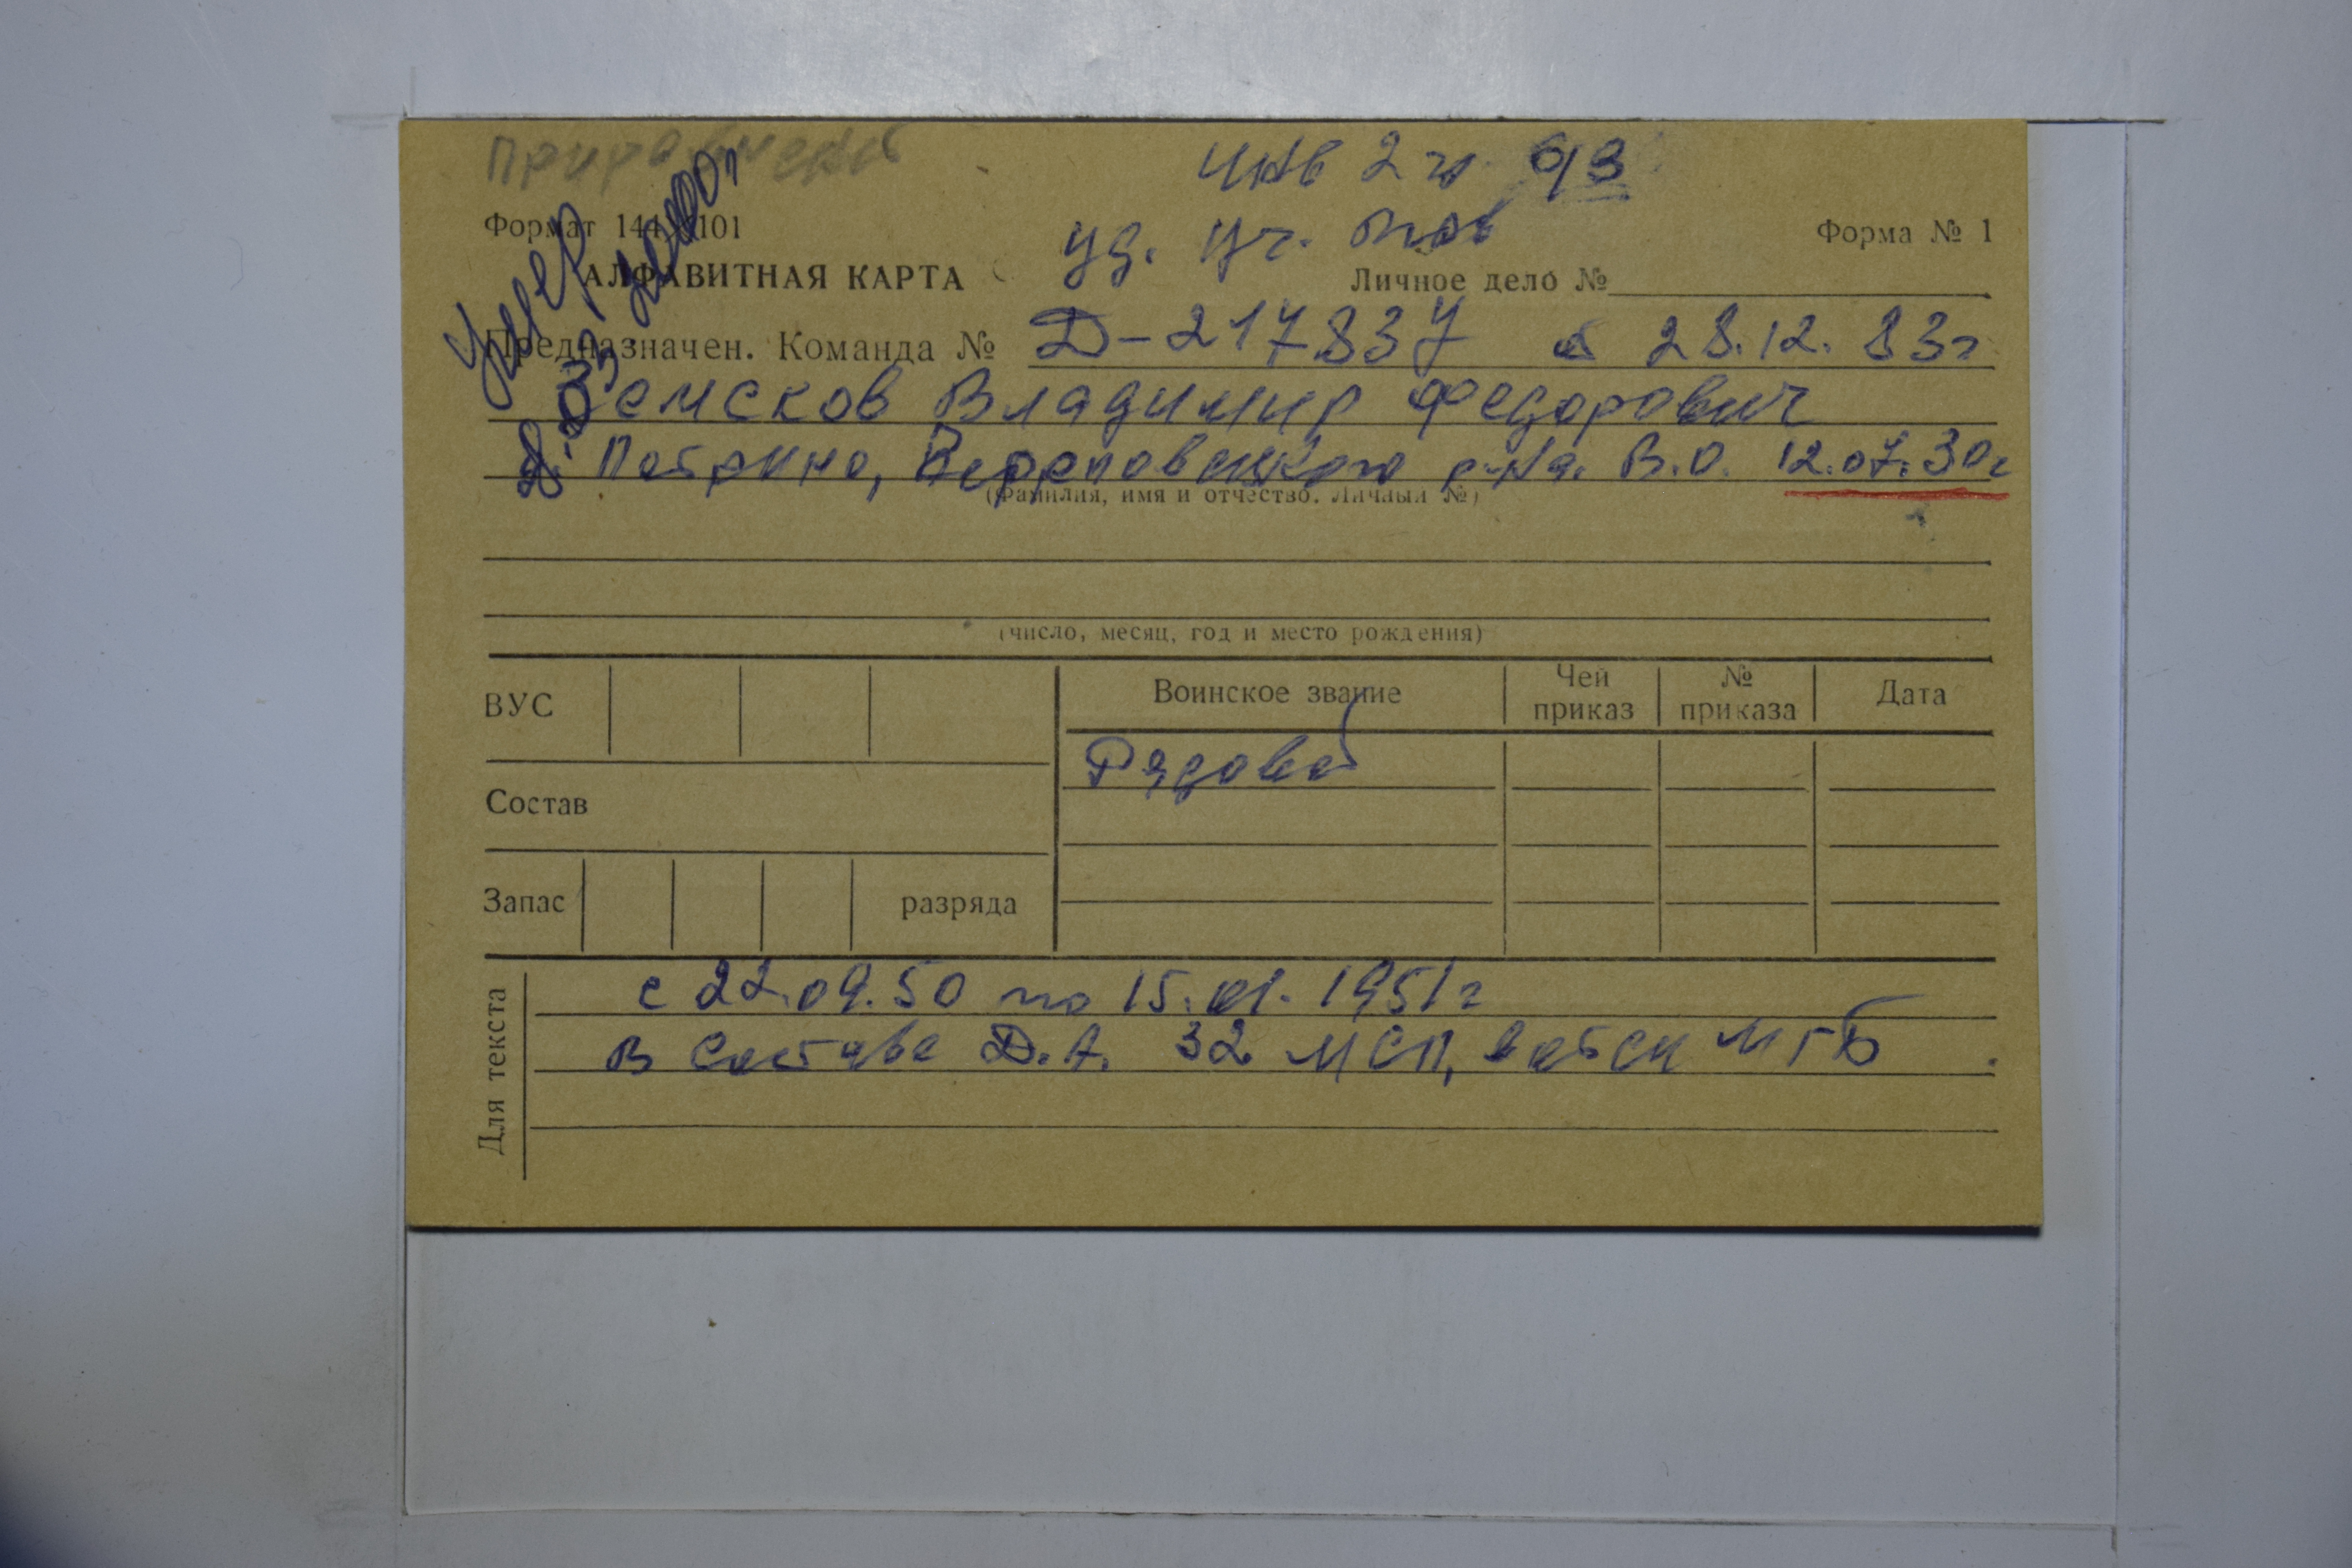 Приравнений
инв 2 гр 93
Умер
Формат 144×101
уд. уч. вов
Форма № 1
АЛФАВИТНАЯ КАРТА
Личное дело №
Предназначен. Команда № Д-217837 28.12.83г
Земсков Владимир Федорович
д. Патрино, Череповецкого р-на. В.О. 12.07.30г
(Фамилия, имя и отчество. Личный №)
(число, месяц, год и место рождения)
ВУС
Воинское звание
Чей приказ
№ приказа
Дата
Рядовой
Состав
Запас
разряда
Для текста
с 22.09.50 по 15.01.1951г
в составе Д.А. 32 МСП, войск МГБ